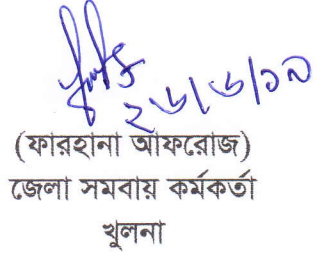 ২৬/৬/১৯
(ফারহানা আফরোজ)
জেলা সমবায় কর্মকর্তা
খুলনা